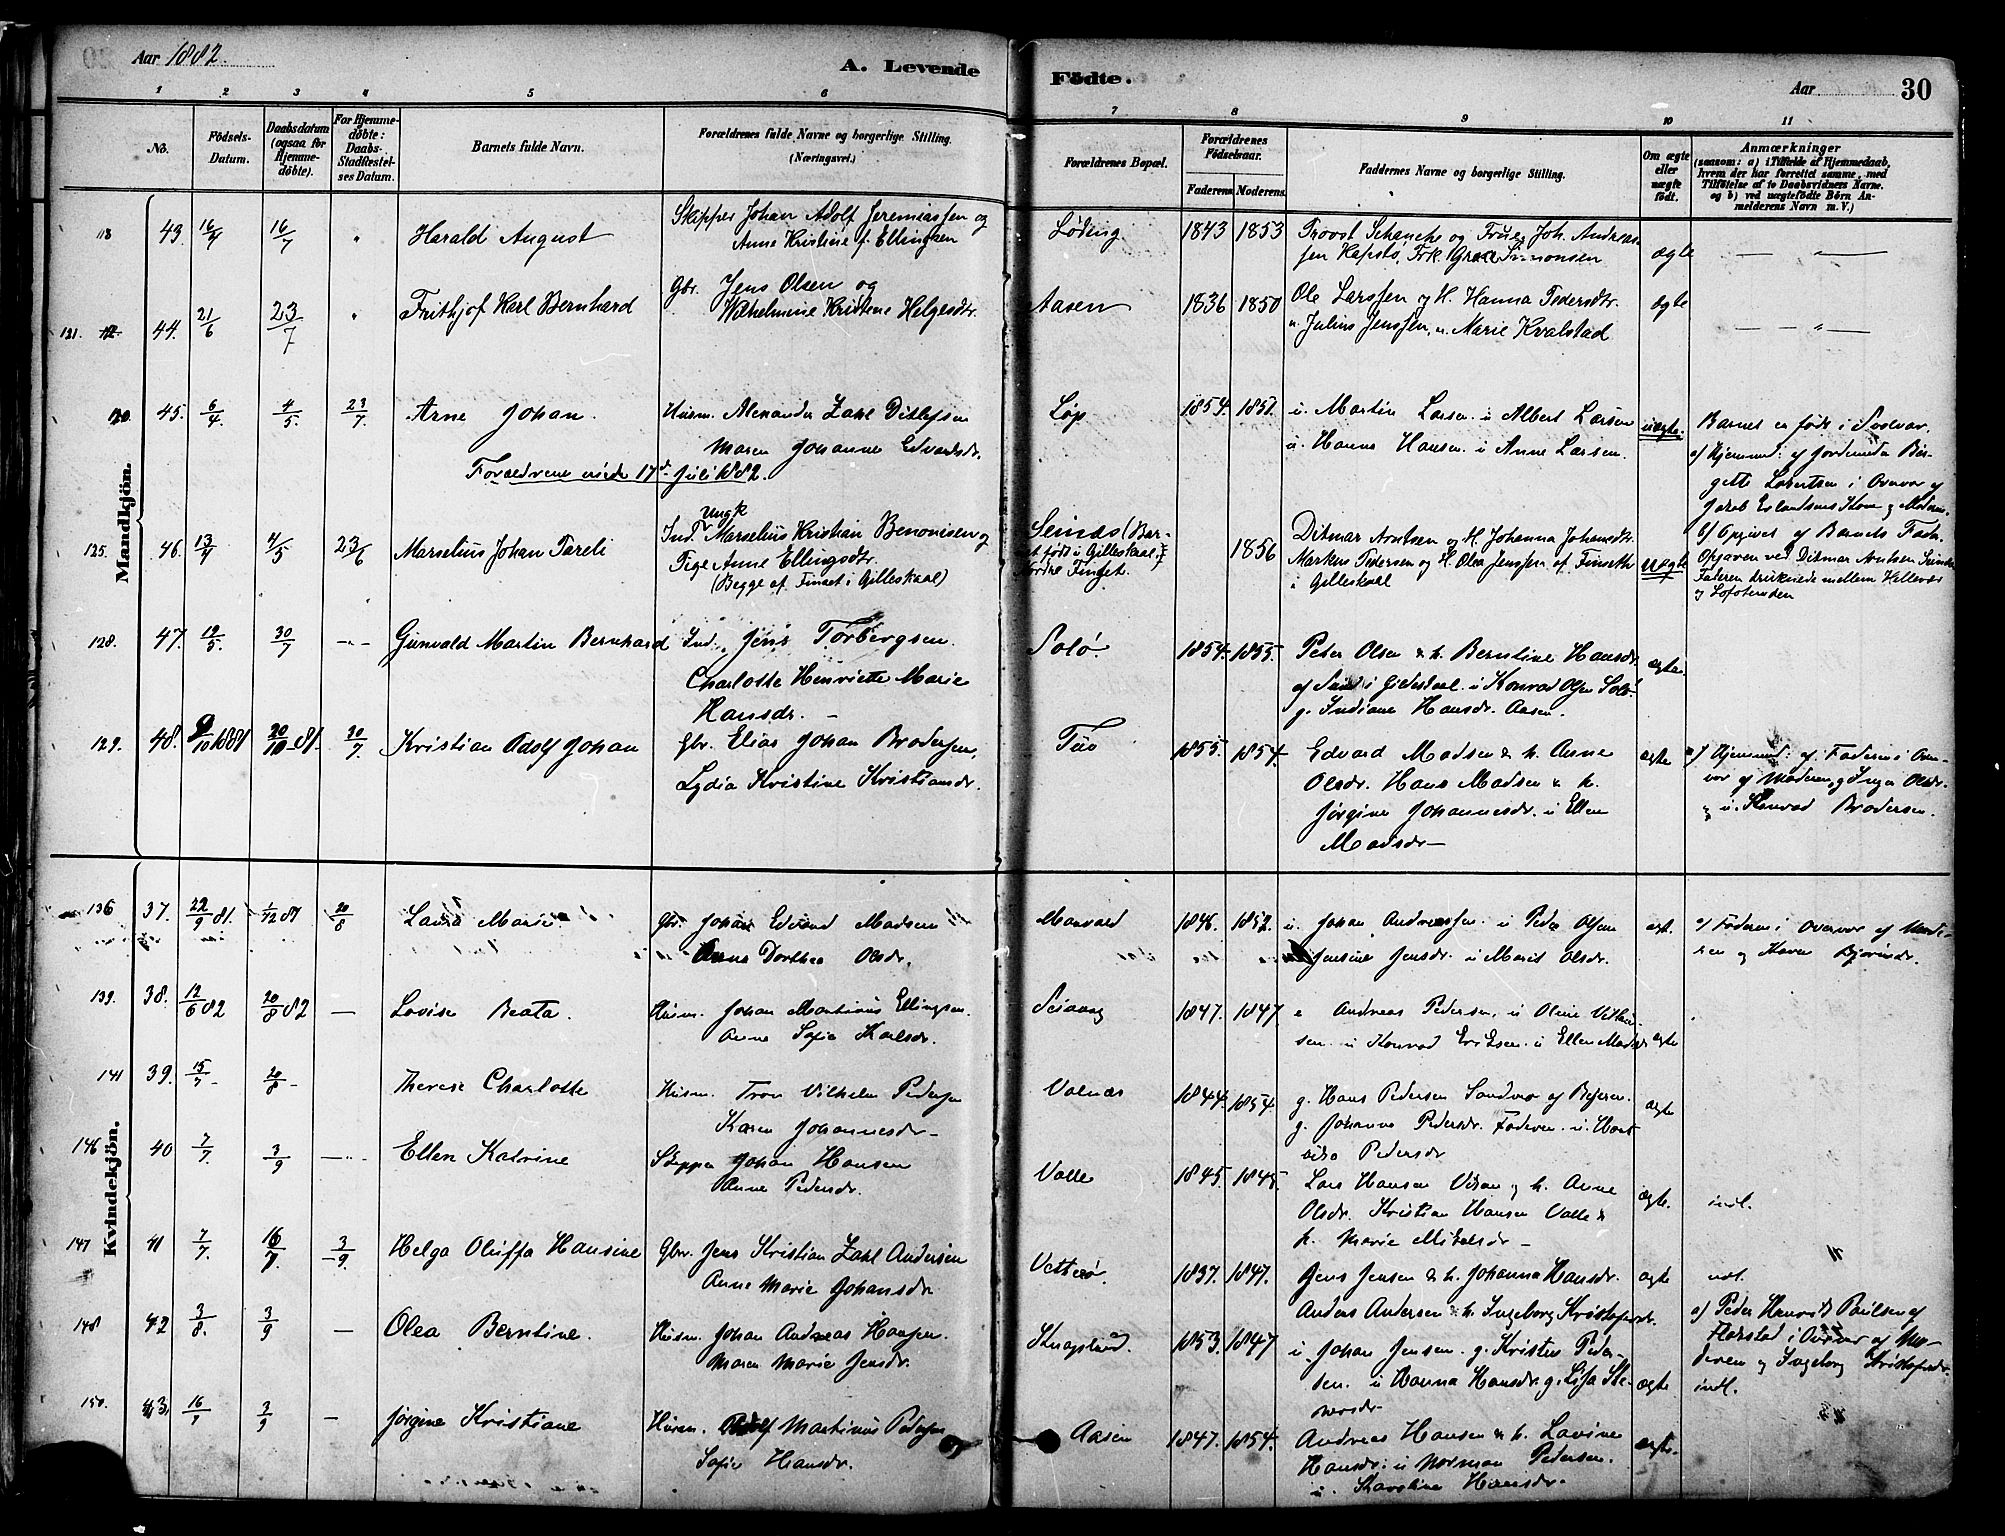 Aar 1882.
A. Levende Fødte.
Aar
30
1 2 3 4 5 6 7 8 9 10 11
No.
Fødsels-Datum.
Daabsdatum (ogsaa for Hjemmedøbte).
For Hjemmedøbte: Daabs-Stadfæstelses Datum.
Barnets fulde Navn.
Forældrenes fulde Navne og borgerlige Stilling.
(Næringsvei.)
Forældrenes Bopæl.
Forældrenes Fødselsaar.
Faderens. Moderens.
Faddernes Navne og borgerlige Stilling.
Om ægte eller uægte født.
Anmærkninger
(saasom: a) i Tilfælde af Hjemmedaab,
hvem der har forrettet samme, med
Tilføielse af to Daabsvidners Navne.
og b) ved uægtefødte Børn Anmelderens Navn m. V.)
Mandkjön.
118 43. 16/7 Harald August
Skipper Johan Adolf Jeremiassen og
Anne Kristine f. Ellingsen
Løding 1843 1853
Provst Schanche og Frue, Joh. Andreas-
sen Hopstø, Frk. Simonsen
ægte
121. 44. 21/6 23/7 Frithjof Karl Bernhard
Gbr. Jens Olsen og
Wilhelmine Kristine Helgesdtr.
Aasen 1836 1850
Ole Larssen og H. Hanna Pedersdtr.
u. Julius Jenssen, u. Marie Kvalstad
ægte
120. 45. 6/4 4/5 23/7 Arne Johan.
Husm. Alexander Zahl Ditlefsen
Maren Johanne Edvardsdr.
Forældrene viede 17d Juli 1882.
Løp 1854. 1851.
u. Martin Larsen. u Albert Larsen
u. Hanna Hansen. u Anne Larsen.
uægte.
Barnet er født i Svolvær.
a) Hjemmed: af Jordemoder Bir-
gette Lorentsen i
125. 46. 13/4 4/5 23/6 Marselius Johan Pareli
Ind. Ungk Marselius Kristian Benonisen og
Pige Anne Ellingsdtr.
(Begge af Finset i Gilleskaal)
Seines (Bar-
net født i Gilleskaal
Nordre Finset.
1856
Ditmar Arntsen og H. Johanna Johansdtr.
Markus Pedersen og H. Olea Jenssen af Finseth
i Gilleskaal
uægte
b) Opgivet af Barnets Fader
Opgaven ved Ditmar Arntsen
Faderen druknede mellem Hellever
og Lofotenden
128. 47. 19/5. 30/7 Gunvald Martin Bernhard
Ind. Jens Torbergsen.
Charlotte Henriette Marie
Hansdr.
Solø. 1854. 1855.
Peter Olsen & h. Berntine Hansdr.
af Sund i Gildeskaal. u Konrad Olsen Solø
g. Indiane Hansdr. Aasen.
ægte.
129. 48. 9/10 1881 20/10-81. 30/7 Kristian Adolf Johan
Gbr. Elias Johan Brodersen,
Lydia Kristine Kristiansdr.
Tuo 1855. 1854.
Edvard Madsen & h. Anne
Olsdr. Hans Madsen & h.
Jørgine Johannesdr. u Ellen
Madsdr
ægte
a) Hjemmed: af Faderen i
af Moderen, og Inger Olsdr.
og u. Konrad Brodersen.
Kvindekjön.
136 37. 22/9 81. 1/12 81 20/8 Laura Marie.
Gbr. Johan Edvard Madsen
Anna Dorthea Olsdr.
1846. 1852.
u. Johan Andreassen. u Peder Olsen
Jensine Jensdr. u Marit Olsdr.
ægt.
a) Faderen i Overvær af Mode-
ren og Karen
139. 38. 12/6 82 20/8 82 Lovise Beata.
Husm. Johan Martinus Ellingsen.
Anne Sofie Karlsdr.
1847. 1847.
Andreas Pedersen. u Oline
u Konrad Eriksen. u Ellen
ægte
141 39. 15/7 20/8 Therese Charlotte
Husm. Tron Vilhelm Pedersen
Karen Johannesdr
Valnæs 1844. 1854.
g. Hans Pedersen Sandvær af Bejeren.
g. Johanna Pedersdr. Faderen. u.
Pedersdr
ægte
146 40 7/7. 3/9 Ellen Katrine
Skipper Johan Hansen
Anne Pedersdr.
Valle 1845. 1845.
Lars Hansen og h. Anne
Olsdr. Kristian Hansen Valle &
h. Marie Mikelsdr
ægte. indl.
147 41 7/7. 16/7. 3/9. Helga Oluffa Hansine
Gbr. Jens Kristian Zahl Andersen
Anne Marie Johansdr.
Vetterø. 1837. 1847.
Jens Jensen & h. Johanna Hansdr.
Anders Andersen & h. Ingeborg Kristofersdr.
ægte indl.
a) Peder Henrik Paulsen af
Flørstad i Overvær af Mo-
deren og Ingeborg Kristofersdr.
148 42 3/8. 3/9 Olea Berntine.
Husm. Johan Andreas Haagens.
Maren Marie Jensdr.
1853. 1847
u. Johan Jensen. g. Kristen Peder-
sen. u Hanna Hansdr. g. Lisa Ste-
ægte indl.
150. 43. 3/9 Jørgine Kristiane
Husm. Adolf Martinus Pedersen
Sofie Hansdr.
Aasen 1847. 1854.
Andreas Hansen & h. Lavine
Hansdr. u Norman Pedersen.
u. Karoline Hansdr.
ægte.